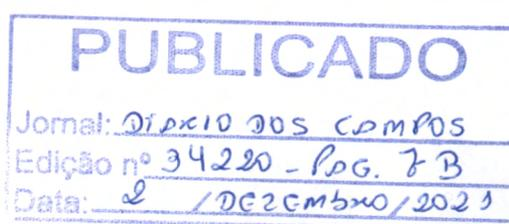 PUBLICADO
Jornal: DIÁRIO DOS CAMPOS
Edição nº 34220 - PÁG. 7B
Data: 2 / DEZEMBRO / 2021